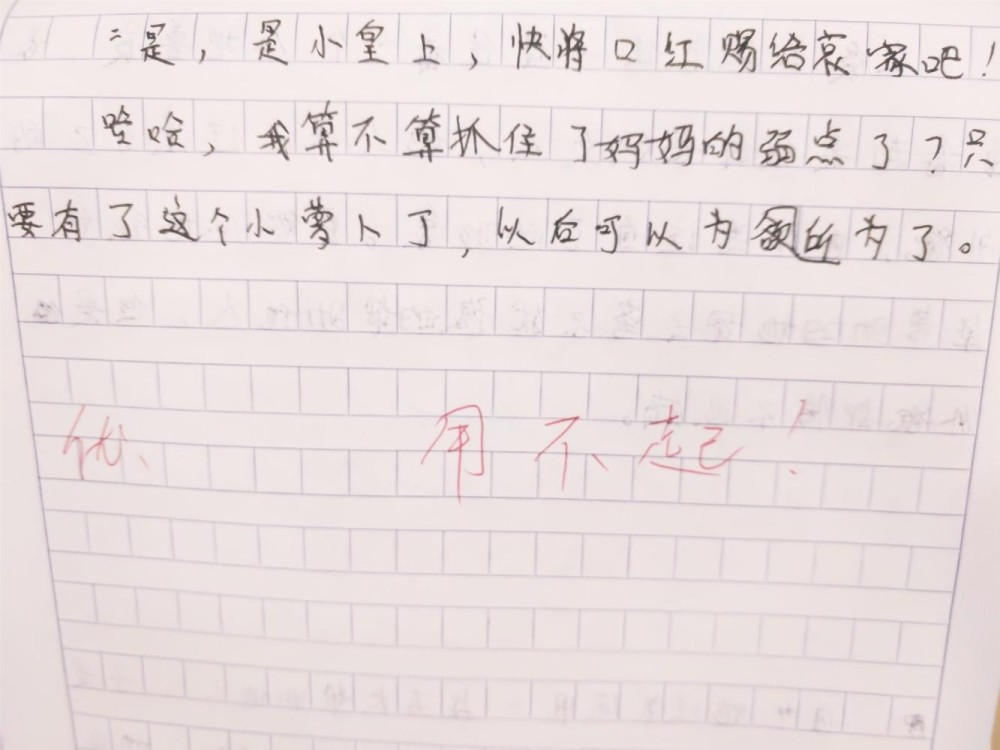 “是，是小皇上，快将口红赐给哀家吧！
哈哈，我算不算抓住了妈妈的弱点了？只
要有了这个小萝卜丁，以后可以为所为了。
优、 用不起！